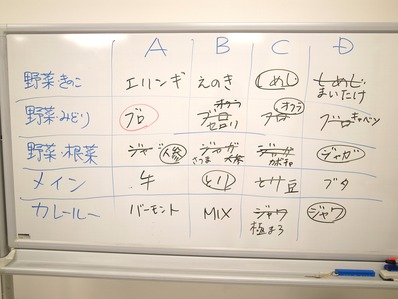 A B C D
野菜きのこ エリンギ えのき しめじ しめじ まいたけ
野菜・みどり ブロ ブロ オクラ セロリ ブロ オクラ ブロ キャベツ
野菜・根菜 ジャガ 人参 ジャガ さつま 大根 ジャガ カボチャ ジャガ
メイン 牛 とり ヒヨコ豆 ブタ
カレールー バーモント MIX ジャワ 極まろ ジャワ